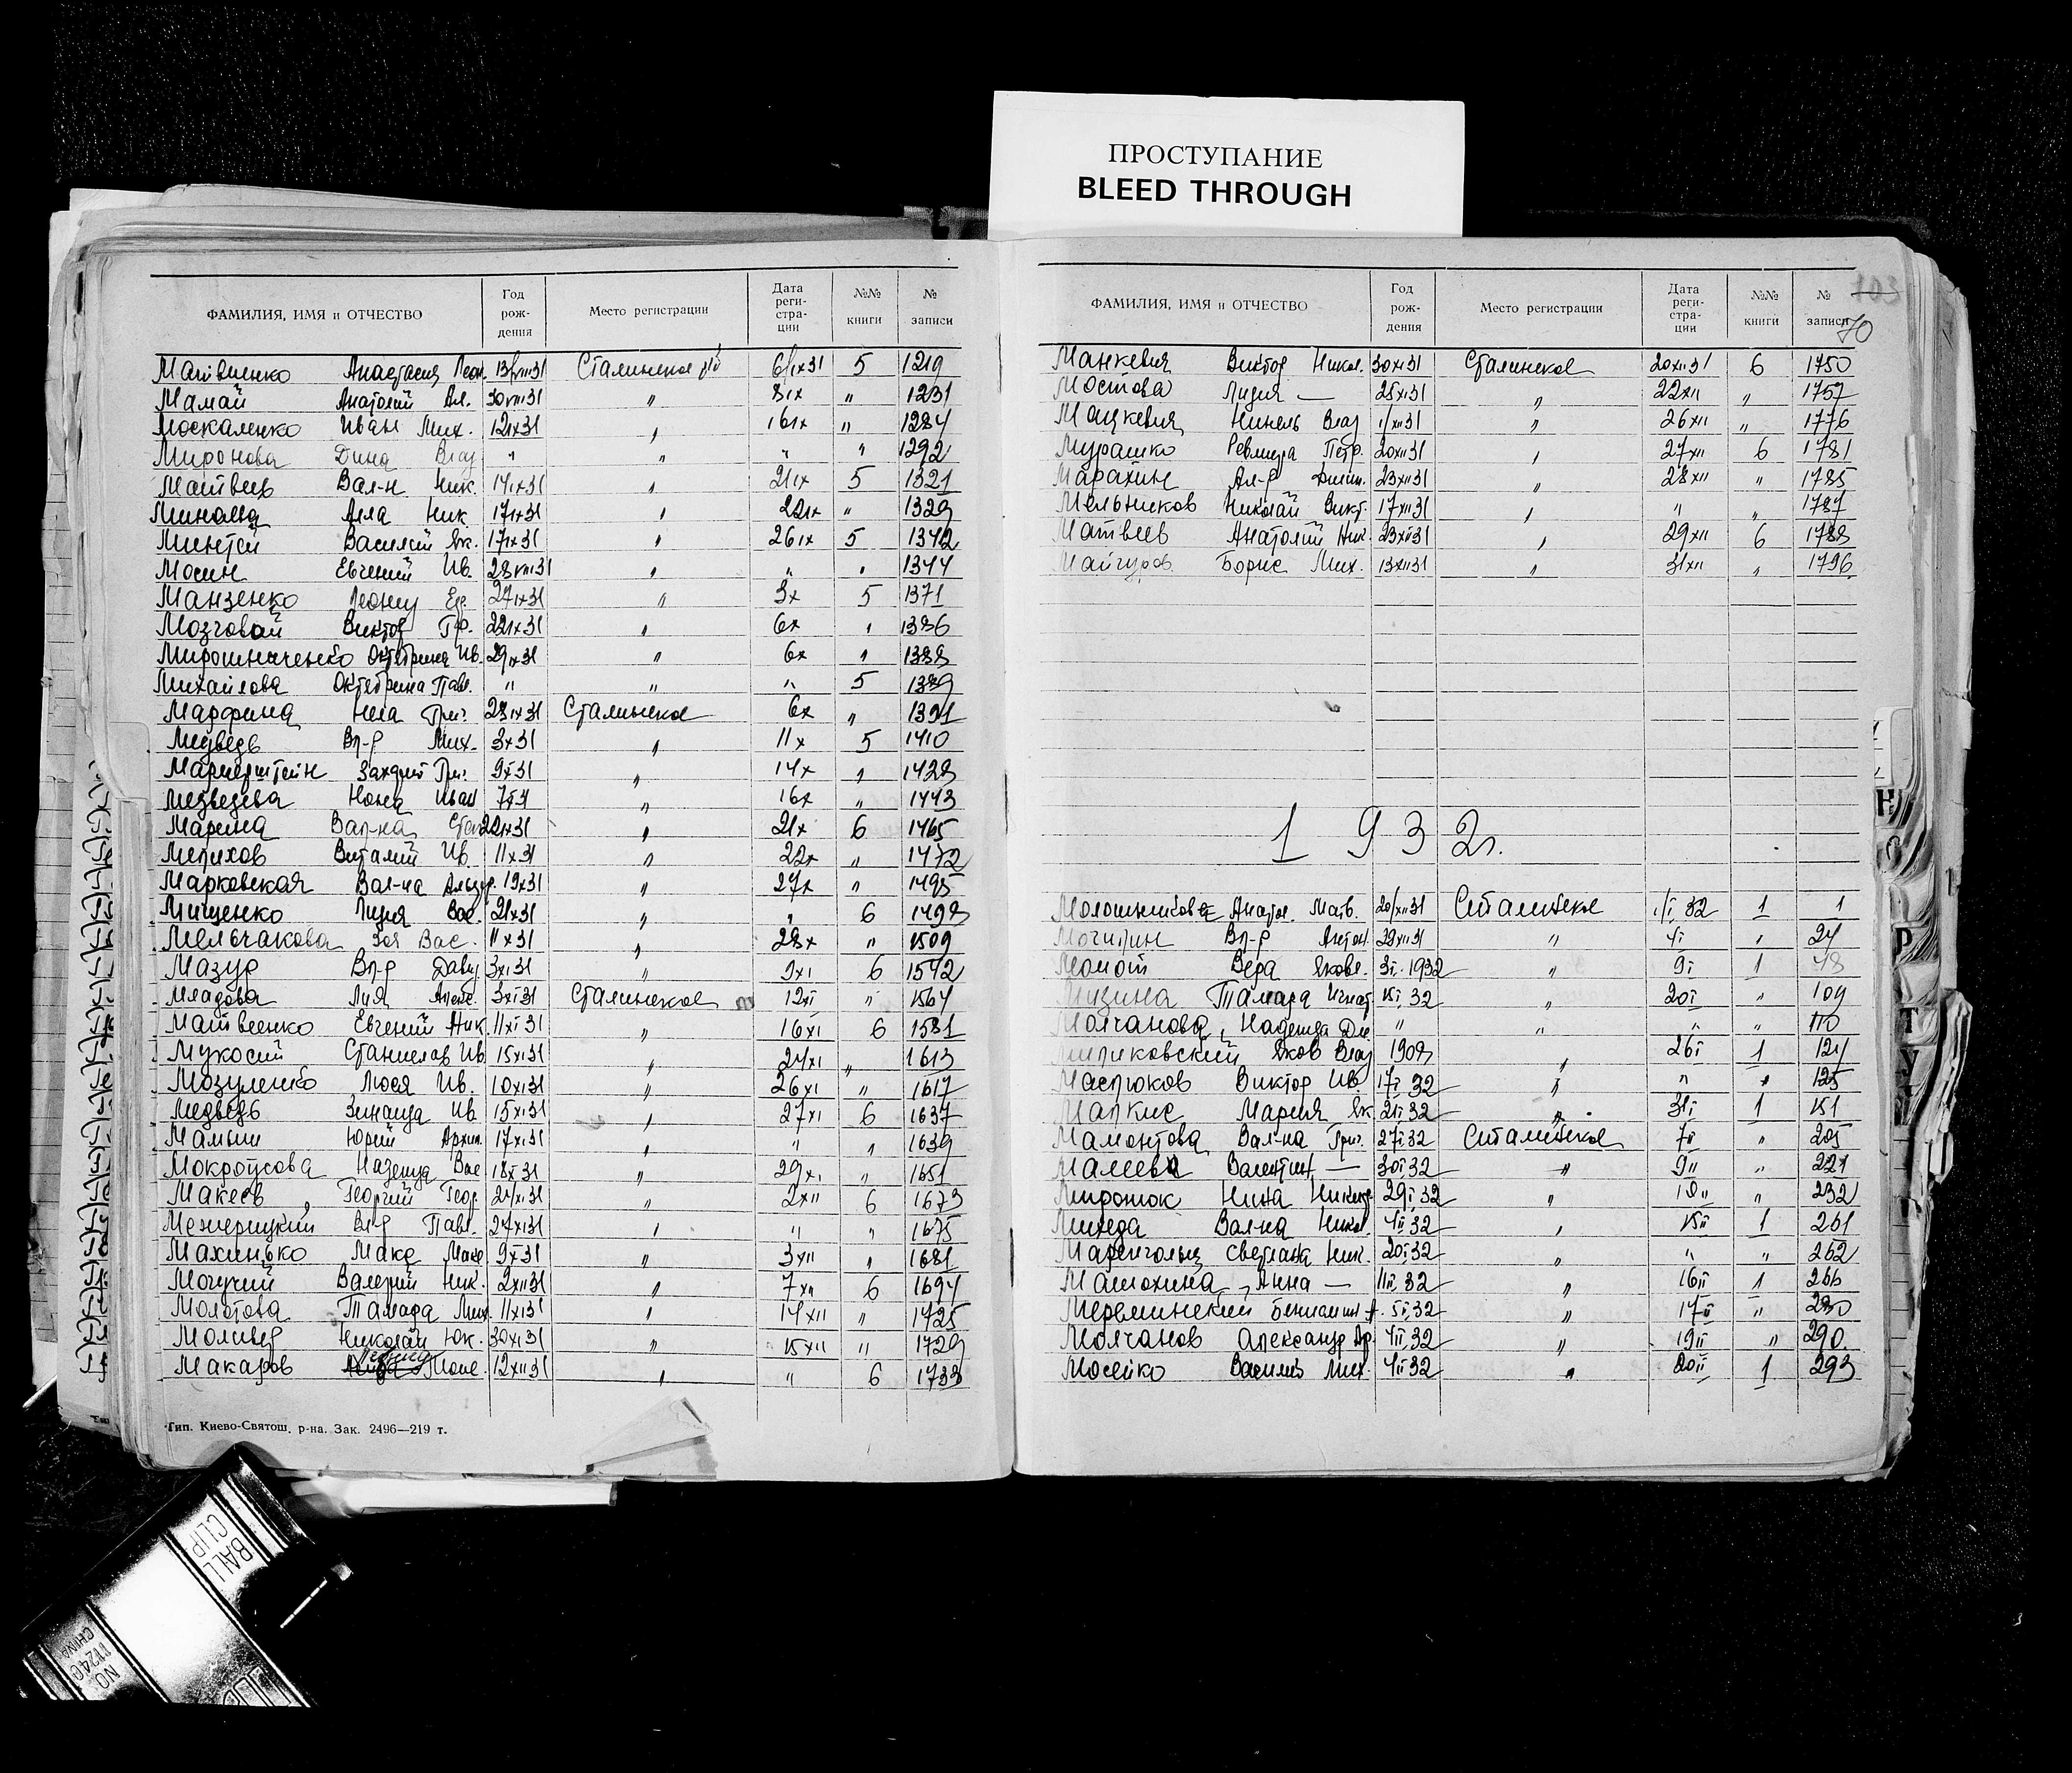 ПРОСТУПАНИЕ
BLEED THROUGH
ФАМИЛИЯ, ИМЯ и ОТЧЕСТВО Год рож-дения Место регистрации Дата реги-стра-ции №№ книги № записи
Матвиенко Анастасия Леон. 13/VIII31 Сталинское 6/IX31 5 1219
Мамай Анатолий Ал. 30VIII31 " 8IX " 1231
Москаленко Иван Мих. 12IX31 " 16IX " 1284
Миронова Дина Влад " " " " 1292
Матвеев Вал-н Ник. 14IX31 " 21IX 5 1321
Алла Ник 17IX31 " 22IX " 1329
Василий Як. 17IX31 " 26IX 5 1342
Мосин Евгений Ив. 28VIII31 " " " 1344
Манзенко Леонид 27IX31 " 3X 5 1371
Мозговой Виктор Гр. 22IX31 " 6X " 1386
Мирошниченко Октябрина Ив. 29IX31 " 6X " 1388
Михайлова Октябрина Павл. " " " 5 1389
Марфина Нела Григ. 28IX31 Сталинское 6X " 1391
Медведь Вл-р Мих. 3X31 " 11X 5 1410
Григ. 9X31 " 14X " 1428
Медведева Нона Иван " 16X " 1443
Марена Вал-на 22IX31 " 21X 6 1465
Мелихов Виталий Ив. 11X31 " 22X " 1472
Марковская Вал-на 19X31 " 27X " 1495
Мищенко Лидия Вас. 21X31 " " 6 1498
Мельчакова Зоя Вас. 11X31 " 28X " 1509
Мазур Вл-р Давид 3XI31 " 9XI 6 1542
Младова Лия Алекс. 3XI31 Сталинское 12XI " 1564
Матвеенко Евгений Ник. 11XI31 " 16XI 6 1581
Мукосий Станислав Ив 15XI31 " 24XI " 1613
Мозуленко Люся Ив. 10XI31 " 26XI " 1617
Медведь Зинаида Ив. 15XI31 " 27XI 6 1637
Юрий Архип. 17XI31 " " " 1639
Мокроусова Надежда Вас 18XI31 " 29XI " 1651
Макеев Георгий Геор. 24XI31 " 2XII 6 1673
Межерицкий Вл-р Павл. 27XI31 " " " 1675
Махинько Макс Макс 9XI31 " 3XII " 1681
Могучий Валерий Ник. 2XII31 " 7XII 6 1694
Молотова Тамара Мих. 11XI31 " 14XII " 1725
Моливер Николай Юк. 30XI31 " 15XII " 1729
Макаров Леонид Моис. 12XII31 " " 6 1733
Тип. Киево-Святош. р-на. Зак. 2496—219 т.
103
70
ФАМИЛИЯ, ИМЯ и ОТЧЕСТВО Год рож-дения Место регистрации Дата реги-стра-ции №№ книги № записи
Манкевич Виктор Никол. 30XI31 Сталинское 20XII31 6 1750
Мостова Лидия — 25XI31 " 22XII " 1757
Мацкевич Нинель Влад 1/XII31 " 26XII " 1776
Мурашко Ревмира Петр. 20XII31 " 27XII 6 1781
Марахин Ал-р Дмит. 23XII31 " 28XII " 1785
Мельников Николай Викт. 17XII31 " " " 1787
Матвеев Анатолий Ник. 23XII31 " 29XII 6 1788
Майчуров Борис Мих. 13XII31 " 31XII " 1796
1932г.
Молошников Анатол. Матв. 20/XII31 Сталинское 1/I 32 1 1
Могилин Вл-р Антон. 29XII31 " 4I " 24
Момот Вера Яковл. 3I.1932 " 9I 1 48
Мизина Тамара Игнат 15I,32 " 20I " 109
Молчанова, Надежда " " " " 110
Яков Влад 1908 " 26I 1 124
Маслюков Виктор Ив. 17I,32 " " " 125
Малкис Мария Як. 21I,32 " 31I 1 151
Мамонтова Вал-на Григ. 27I,32 Сталинское 7II " 205
Малеева Валентин. — 30I,32 " 9II " 221
Миронюк Нина 29I,32 " 10II " 232
Михеда Вал-на Никол. 4II,32 " 15II 1 261
Маренгольц Светлана Ник. 20I,32 " " " 262
Матюхина, Анна — 11II,32 " 16II 1 266
Мереминский Бениамин А. 5II,32 " 17II " 280
Молчанов Александр Ар. 4II,32 " 19II " 290
Мосейко Василий Мих. 4II32 " 20II 1 293
BALL
CLIP
NO. 11240
CHINA